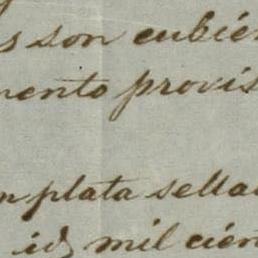 s son cubier
mento provis
n plata sella
id mil cien